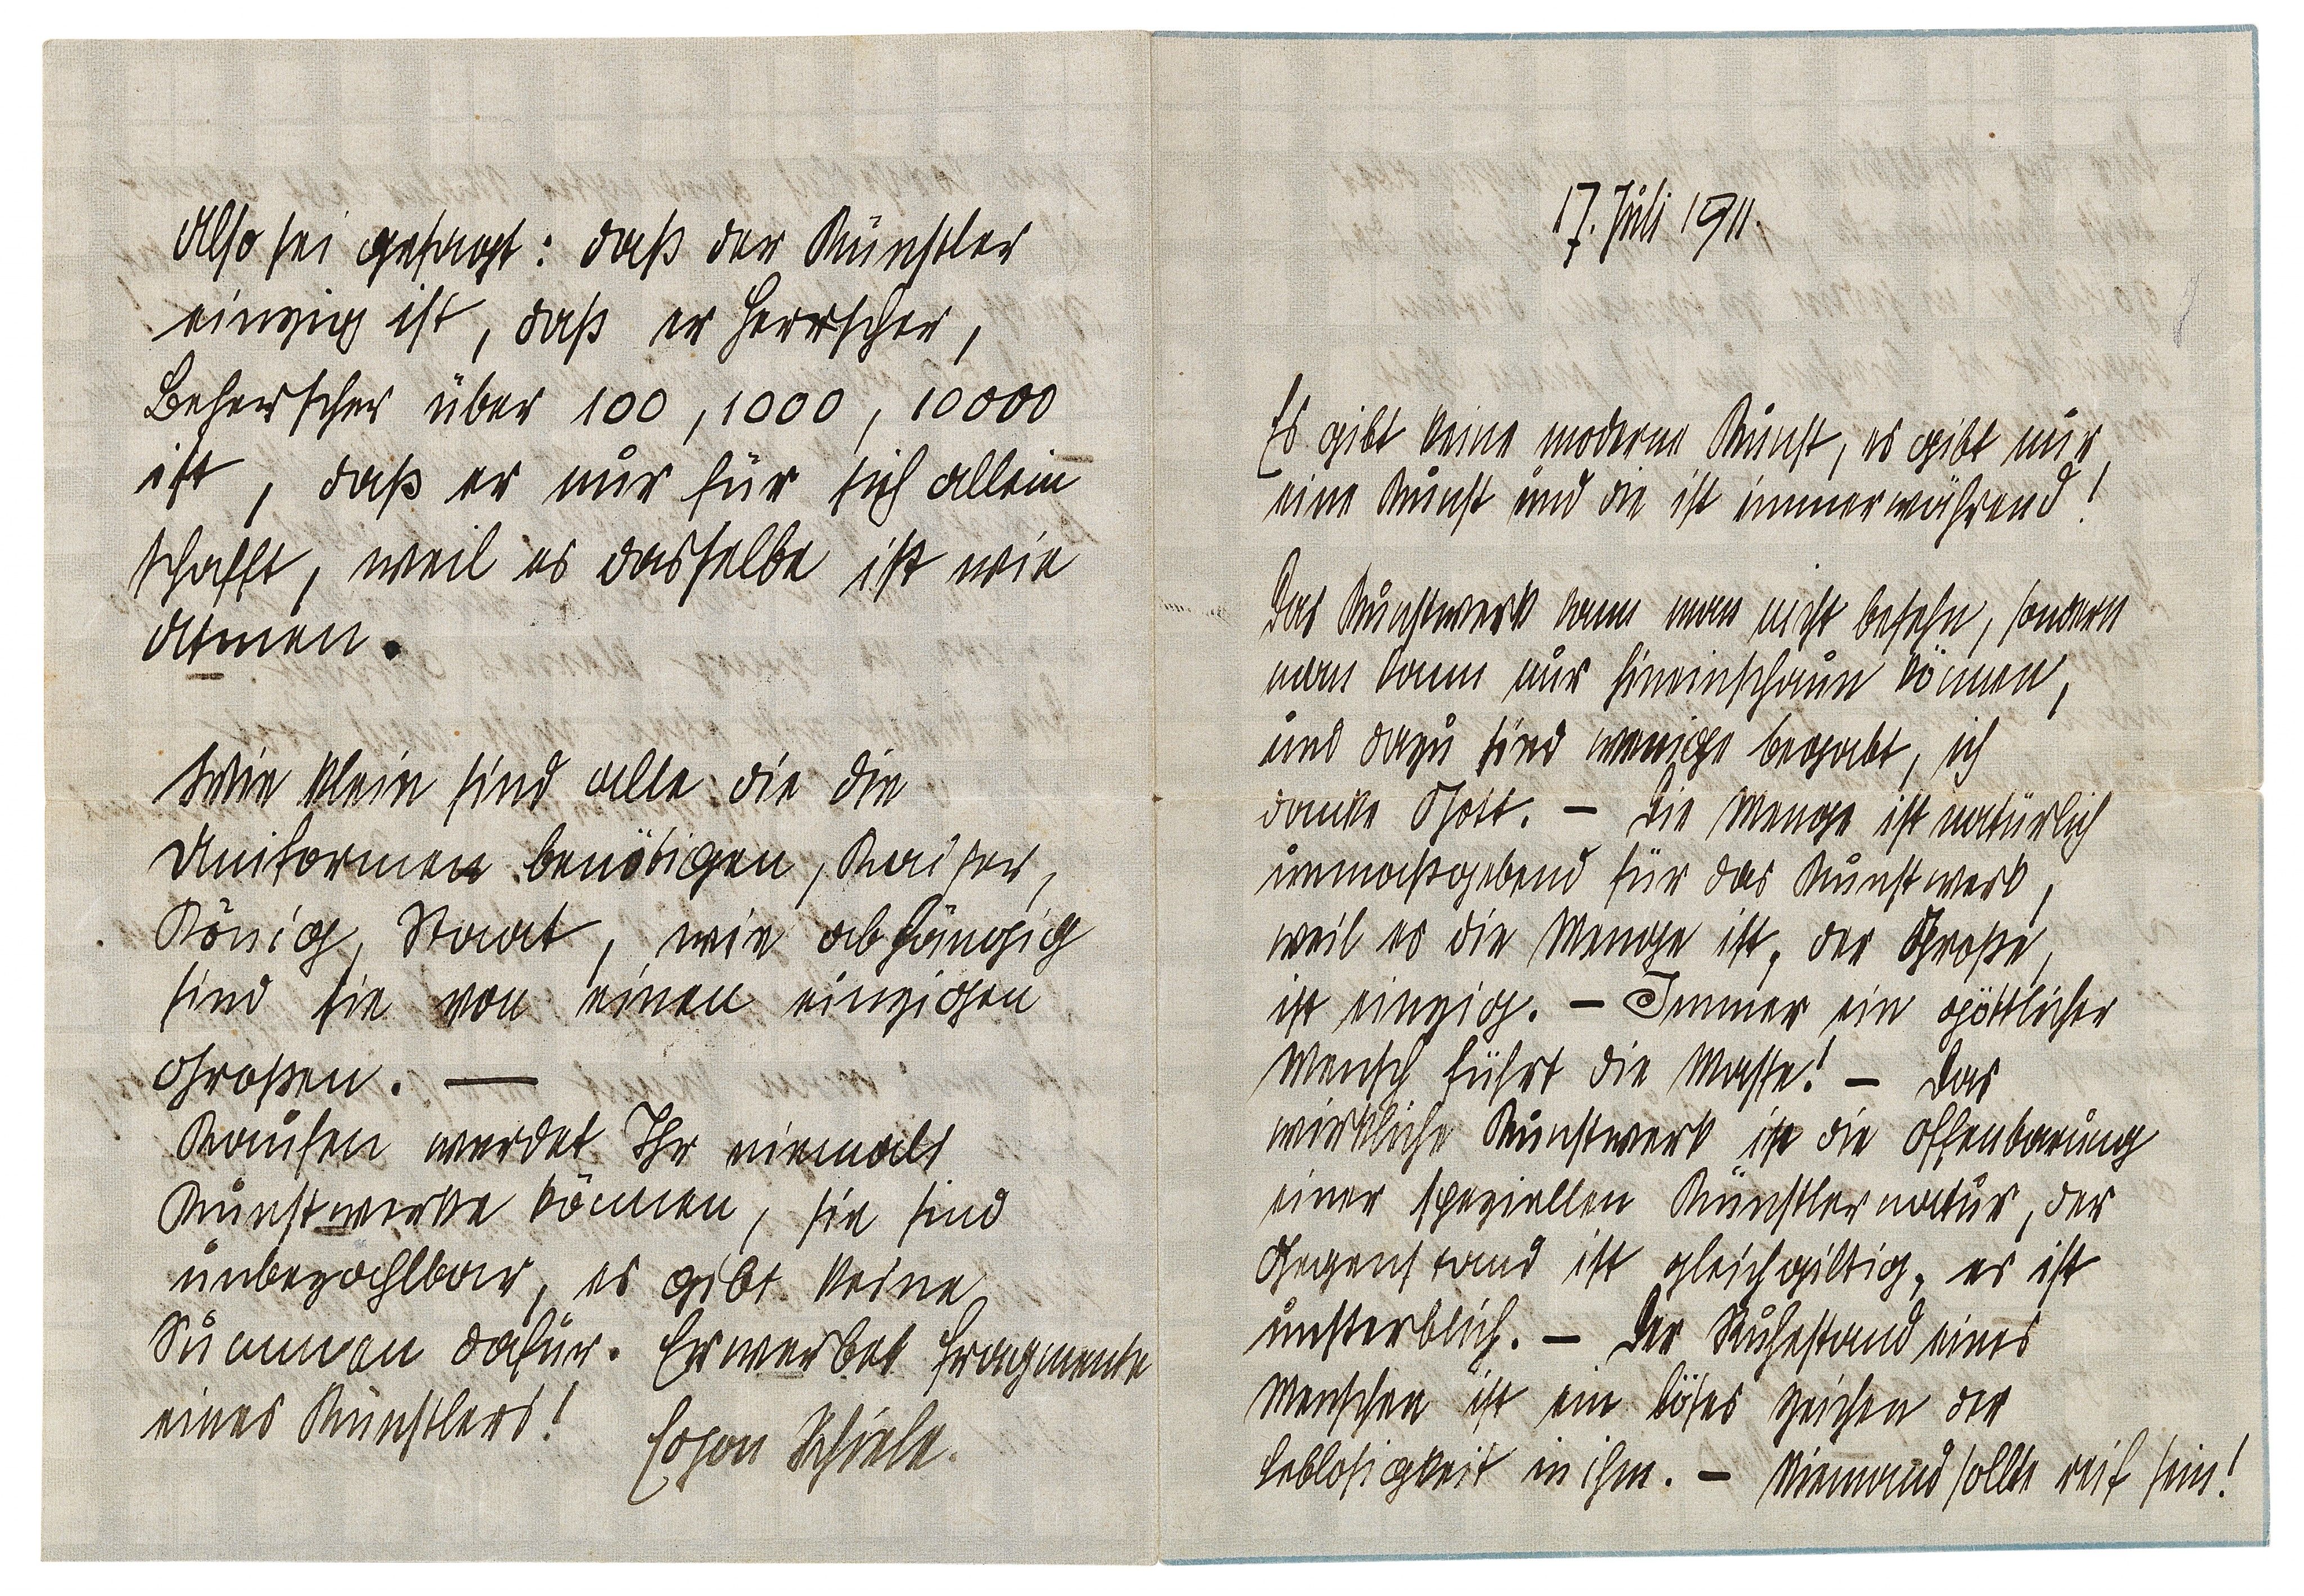 17. Juli 1911.
Es gibt keine moderne Kunst, es gibt nur
eine Kunst und die ist immerwährend!
Das Kunstwerk kann man nicht besehn, sondern
man kann nur hineinschaun können,
und dazu sind wenige begabt, ich
danke Gott. – Die Menge ist natürlich
unmaßgebend für das Kunstwerk,
weil es die Menge ist, der Große,
ist einzig. – Immer ein göttlicher
Mensch führt die Masse! – Das
wirkliche Kunstwerk ist die Offenbarung
einer speziellen Künstlernatur, der
Gegenstand ist gleichgiltig, er ist
unsterblich. – Der Ruhestand eines
Menschen ist ein böses Zeichen der
Leblosigkeit in ihm. – Niemand sollte reif sein!
Also sei gesagt: daß der Künstler
einzig ist, daß er Herrscher,
Beherscher über 100, 1000, 10000
ist, daß er nur für sich allein
schafft, weil es dasselbe ist wie
Atmen.
Wie klein sind alle die die
Uniformen benötigen, Kaiser,
König, Staat, wie abhängig
sind sie von einen einzigen
Großen. —
Kaufen werdet Ihr niemals
Kunstwerke können, sie sind
unbezahlbar, es gibt keine
Summen dafür. Erwerbet Fragmente
eines Künstlers!
Egon Schiele.